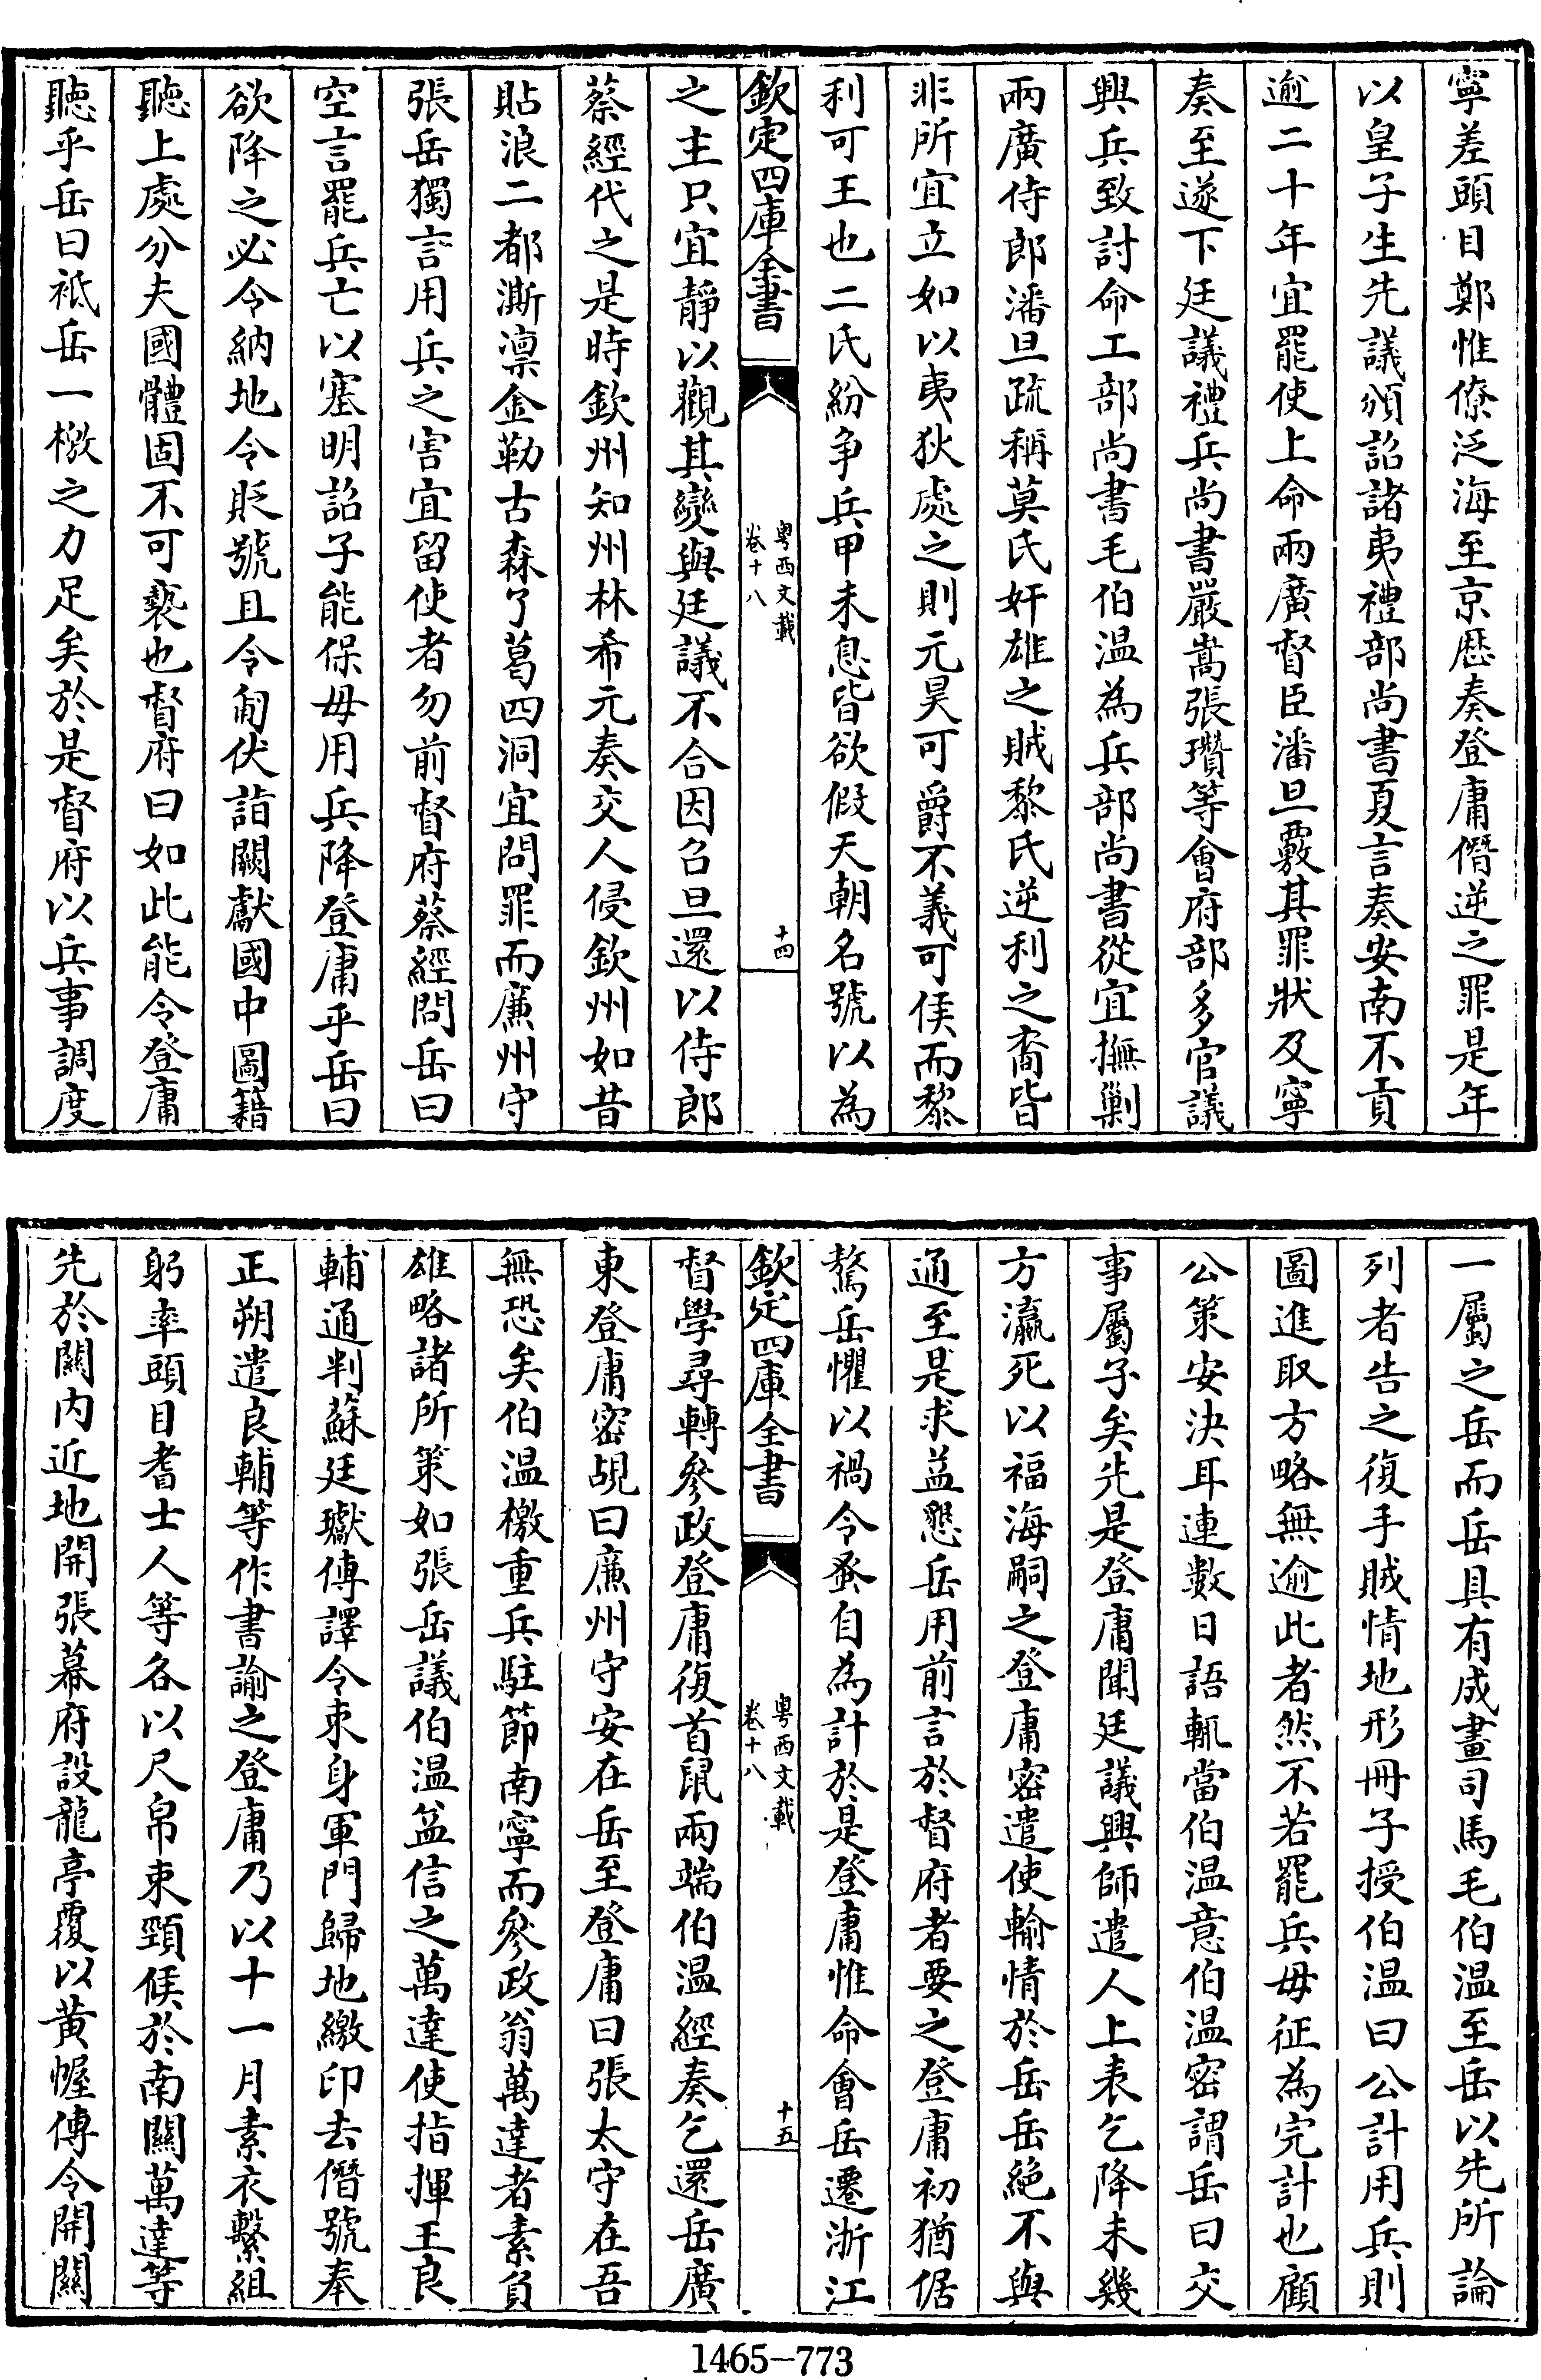 寧差頭目鄭惟僚泛海至京歴奏登庸僭逆之罪是年
以皇子生先議頒詔諸夷禮部尚書夏言奏安南不貢
逾二十年宜罷使上命兩廣督臣潘旦覈其罪狀及寧
奏至遂下廷議禮兵尚書嚴嵩張瓚等會府部多官議
興兵致討命工部尚書毛伯温為兵部尚書從宜撫剿
兩廣侍郎潘旦疏稱莫氏奸雄之賊黎氏逆利之裔皆
非所宜立如以夷狄處之則元昊可爵不義可侯而黎
利可王也二氏紛争兵甲未息皆欲假天朝名號以為
欽定四庫全書
粤西文載
卷十八
十四
之主只宜靜以觀其變與廷議不合因召旦還以侍郎
蔡經代之是時欽州知州林希元奏交人侵欽州如昔
貼浪二都澌凛金勒古森了葛四洞宜問罪而廉州守
張岳獨言用兵之害宜留使者勿前督府蔡經問岳曰
空言罷兵亡以塞明詔子能保毋用兵降登庸乎岳曰
欲降之必令納地令貶號且令匍伏詣闕獻國中圖籍
聽上處分夫國體固不可褻也督府曰如此能令登庸
聽乎岳曰祗岳一檄之力足矣於是督府以兵事調度
一屬之岳而岳具有成畫司馬毛伯温至岳以先所論
列者告之復手賊情地形冊子授伯温曰公計用兵則
圖進取方略無逾此者然不若罷兵毋征為完計也顧
公策安決耳連數日語輒當伯温意伯温密謂岳曰交
事屬子矣先是登庸聞廷議興師遣人上表乞降未幾
方瀛死以福海嗣之登庸密遣使輸情於岳岳絶不與
通至是求益懇岳用前言於督府者要之登庸初猶倨
驁岳懼以禍令蚤自為計於是登庸惟命會岳遷浙江
欽定四庫全書
粤西文載
卷十八
十五
督學尋轉參政登庸復首鼠兩端伯温經奏乞還岳廣
東登庸密覘曰廉州守安在岳至登庸曰張太守在吾
無恐矣伯温檄重兵駐節南寧而參政翁萬達者素負
雄略諸所策如張岳議伯温益信之萬達使指揮王良
輔通判蘇廷瓛傳譯令束身軍門歸地繳印去僭號奉
正朔遣良輔等作書諭之登庸乃以十一月素衣繫組
躬率頭目耆士人等各以尺帛束頸候於南關萬達等
先於關内近地開張幕府設龍亭覆以黄幄傳令開關
1465-773